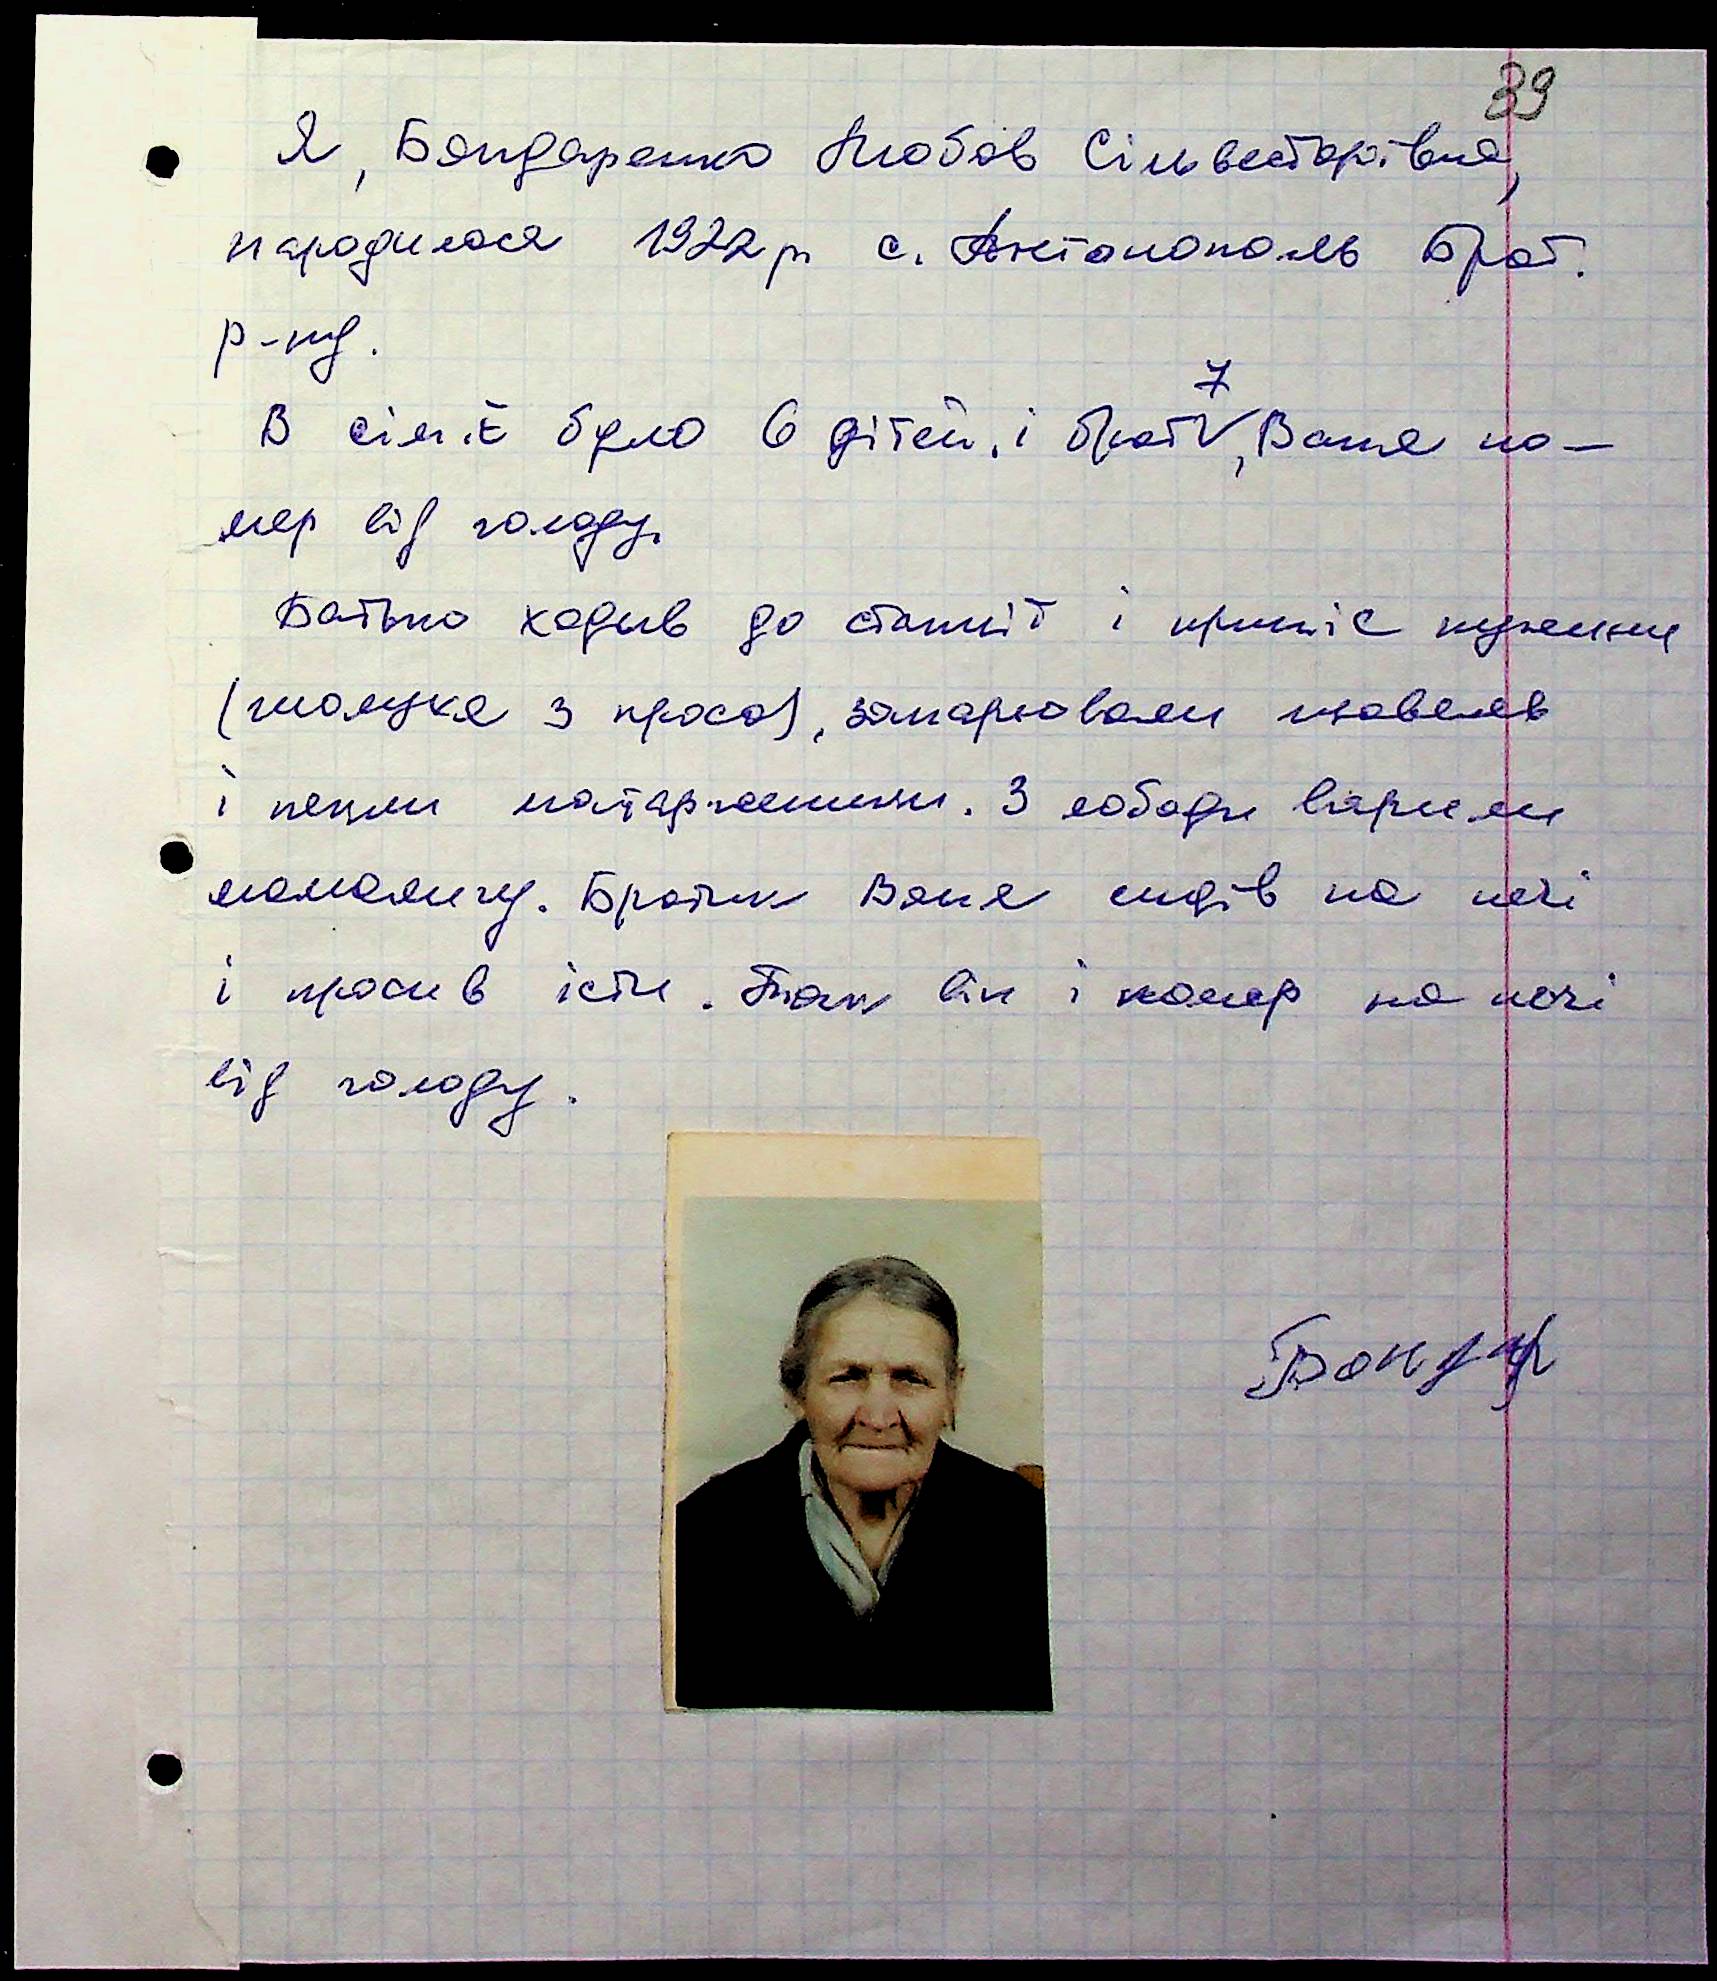 39
Я, Бондаренко Любов Сільвестрівна,
народилася 1922 р. с. Антонополь Брат.
р-ну.
7
В сім'ї було 6 дітей. і брат V, Ваня по-
мер від голоду.
Батько ходив до станції і приніс
(шолуха з проса), запарювали щавель
і пекли маторженики. З лободи варили
мамалигу. Братик Ваня сидів на печі
і просив їсти. Так він і помер на печі
від голоду.
Бондар